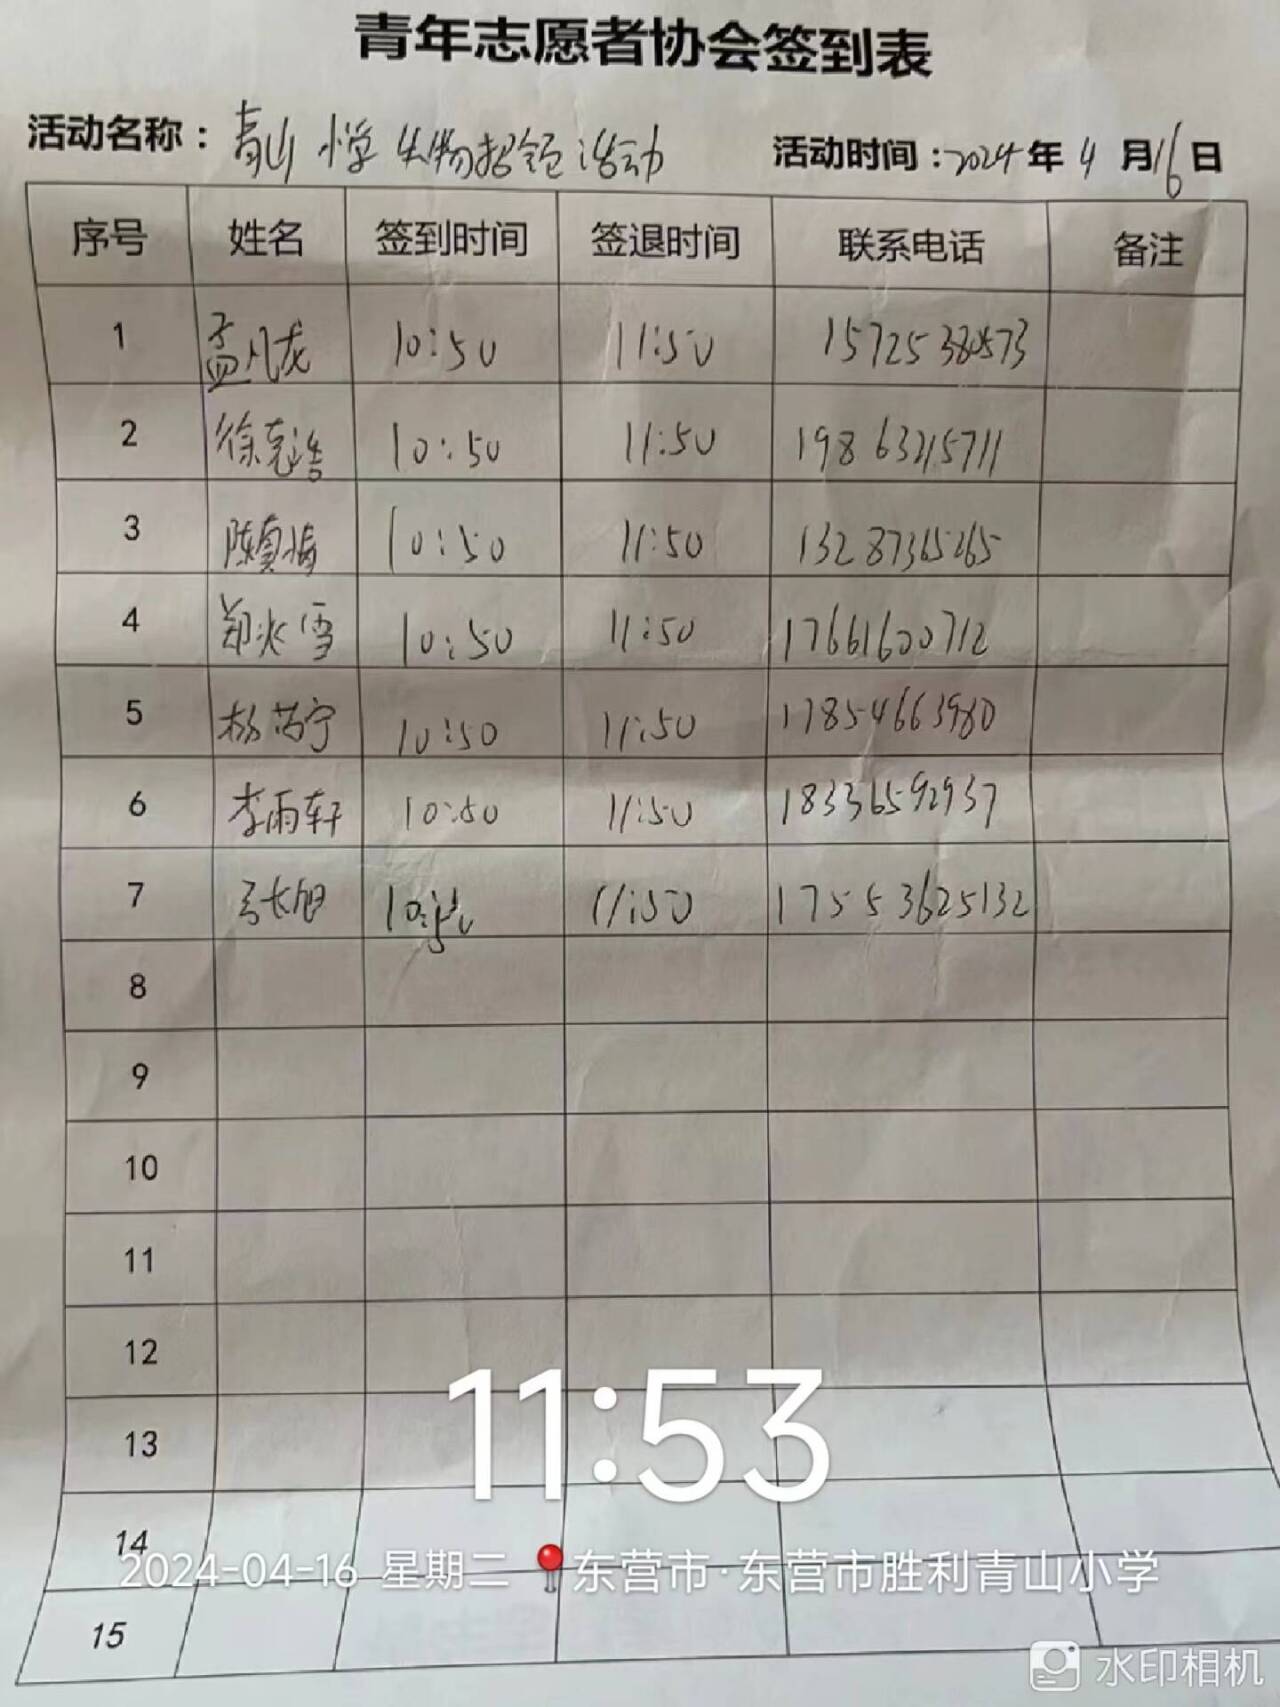 青年志愿者协会签到表
活动名称：青山小学失物招领活动 活动时间：2024年4月16日
序号 姓名 签到时间 签退时间 联系电话 备注
1 孟凡龙 10:50 11:50 15725380573
2 徐克浩 10:50 11:50 19863215711
3 陈真梅 10:50 11:50 13287365265
4 郑冰雪 10:50 11:50 17661600712
5 杨芮宁 10:50 11:50 17854663980
6 李雨轩 10:50 11:50 18336592937
7 10:50 11:50 17553625132
8
9
10
11
12
13
14
15
11:53
2024-04-16 星期二 东营市·东营市胜利青山小学
水印相机